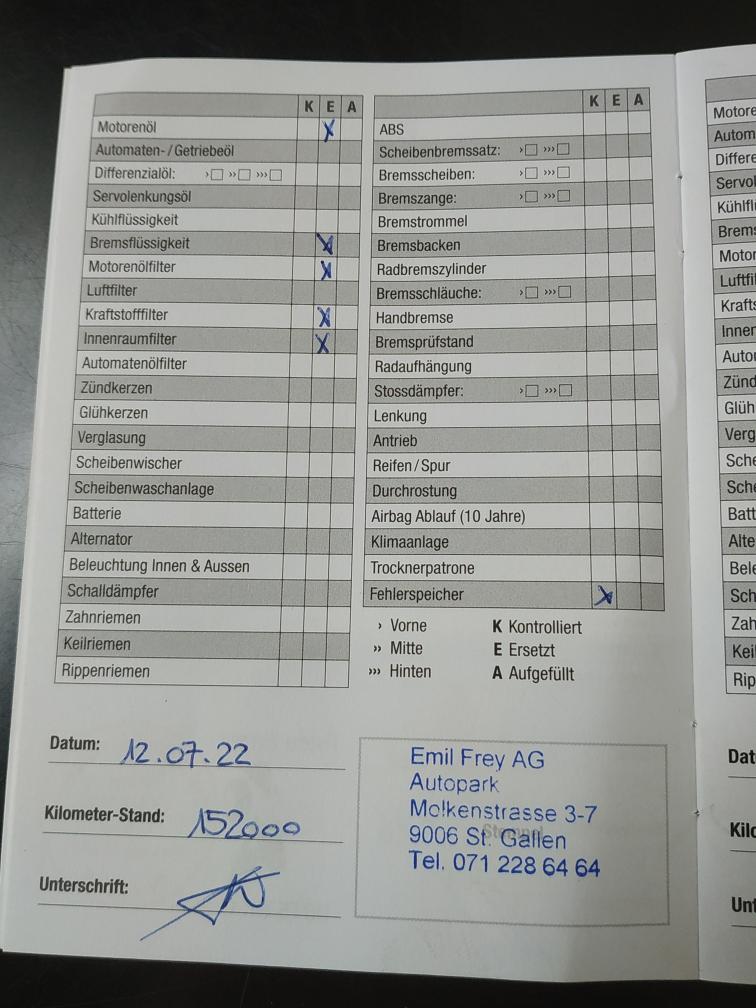 K E A
Motorenöl X
Automaten-/Getriebeöl
Differenzialöl: › ›› ›››
Servolenkungsöl
Kühlflüssigkeit
Bremsflüssigkeit X
Motorenölfilter X
Luftfilter
Kraftstofffilter X
Innenraumfilter X
Automatenölfilter
Zündkerzen
Glühkerzen
Verglasung
Scheibenwischer
Scheibenwaschanlage
Batterie
Alternator
Beleuchtung Innen & Aussen
Schalldämpfer
Zahnriemen
Keilriemen
Rippenriemen
K E A
ABS
Scheibenbremssatz: › ›››
Bremsscheiben: › ›››
Bremszange: › ›››
Bremstrommel
Bremsbacken
Radbremszylinder
Bremsschläuche: › ›››
Handbremse
Bremsprüfstand
Radaufhängung
Stossdämpfer: › ›››
Lenkung
Antrieb
Reifen/Spur
Durchrostung
Airbag Ablauf (10 Jahre)
Klimaanlage
Trocknerpatrone
Fehlerspeicher X
› Vorne K Kontrolliert
›› Mitte E Ersetzt
››› Hinten A Aufgefüllt
Datum: 12.07.22
Kilometer-Stand: 152000
Unterschrift:
Emil Frey AG
Autopark
Molkenstrasse 3-7
Stempel
9006 St. Gallen
Tel. 071 228 64 64
Motore
Autom
Differe
Servol
Kühlfl
Brems
Motor
Luftfil
Krafts
Inner
Auto
Zünd
Glüh
Verg
Sche
Sche
Batt
Alte
Bele
Sch
Zah
Kei
Rip
Dat
Kilo
Unt